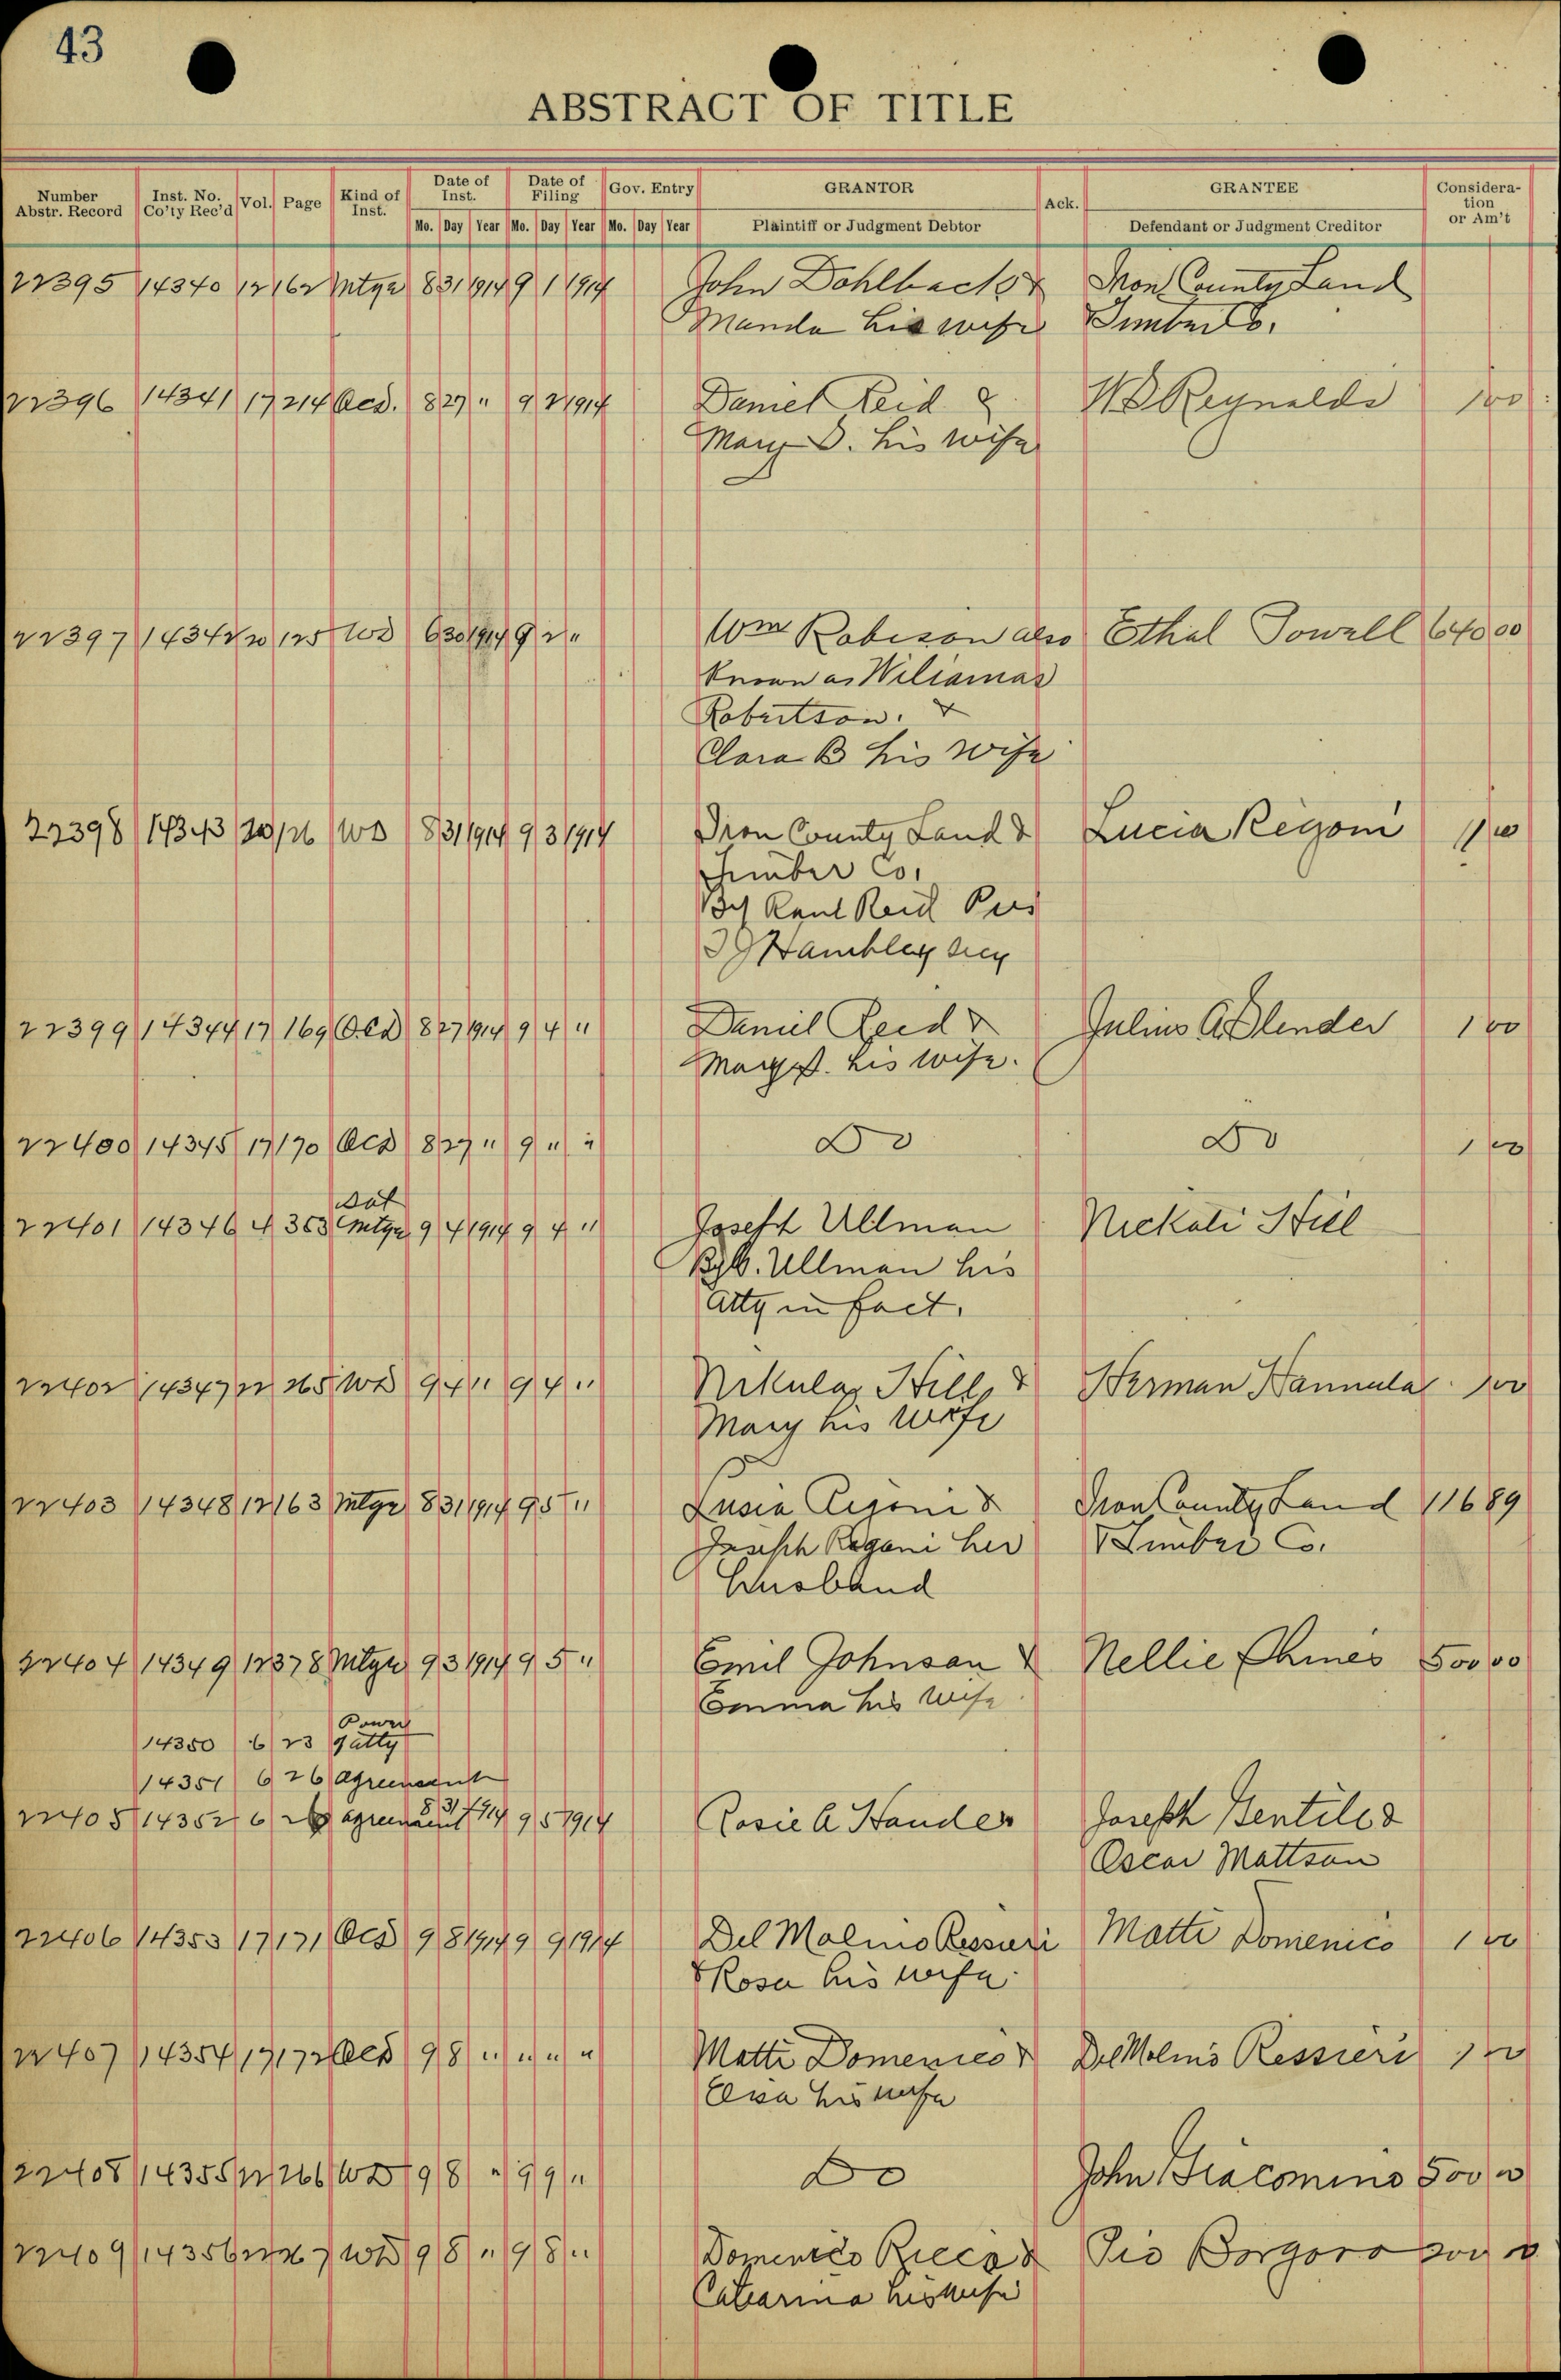 43
ABSTRACT OF TITLE
Number Abstr. Record Inst. No. Co'ty Rec'd Vol. Page Kind of Inst. Date of Inst. Date of Filing Gov. Entry GRANTOR Ack. GRANTEE Consideration or Am't
Mo. Day Year Mo. Day Year Mo. Day Year Plaintiff or Judgment Debtor Defendant or Judgment Creditor
22395 14340 12 162 Mtge 8 31 1914 9 1 1914 John Dahlback & Iron County Land
Manda his wife Timber Co.
22396 14341 17 214 Qcd. 8 27 " 9 2 1914 Daniel Reid & W D Reynolds 100
Mary D. his wife
22397 14342 125 WD 6 30 1914 9 2 " Wm Robison also Ethal Towell 640 00
Known as Wiliamas
Robertson. &
Clara B his wife
22398 14343 20 126 WD 8 31 1914 9 3 1914 Iron County Land & Lucia Regoni
Timber Co.
By Reid Pres
Hambley Secy
22399 14344 17 169 Qcd 8 27 1914 9 4 " Daniel Reed & Julius A Blender 1 00
his wife.
22400 14345 17 170 Qcd 8 27 " 9 " " Do Do 1 00
Sat
22401 14346 4 353 Mtge 9 4 1914 9 4 " Joseph Ullman Nickoli Hill
Ullman his
Atty in fact.
22402 14347 22 265 WD 9 4 " 9 4 " Nikulas Hill & Herman Hannula 100
Mary his wife
22403 14348 12 163 Mtge 8 31 1914 9 5 " Lusia Rigoni & Iron County Land 116 89
Joseph Rigoni her Timber Co.
Husband
22404 14349 12 378 Mtge 9 3 1914 9 5 " Emil Johnson & Nellie 500 00
Emma his wife
Power
14350 6 23 Atty
14351 6 26 Agreement
22405 14352 6 Agreement 8 31 1914 9 5 1914 Rosie A Hander Joseph Gentile &
Oscar Mattson
22406 14353 17 171 Qcd 9 8 1914 9 9 1914 Del Malino Ressieri Matti Domenico 1 00
& Rosa his wife
22407 14354 17 172 Qcd 9 8 " " " " Matti Domenico & Del Molino Ressieri 1 00
his wife
22408 14355 22 266 WD 9 8 " 9 9 " Do John Giacomino 500 00
22409 14356 WD 9 8 " 9 8 " Domenico Ricco & Pio Borgoro
Catarina his wife